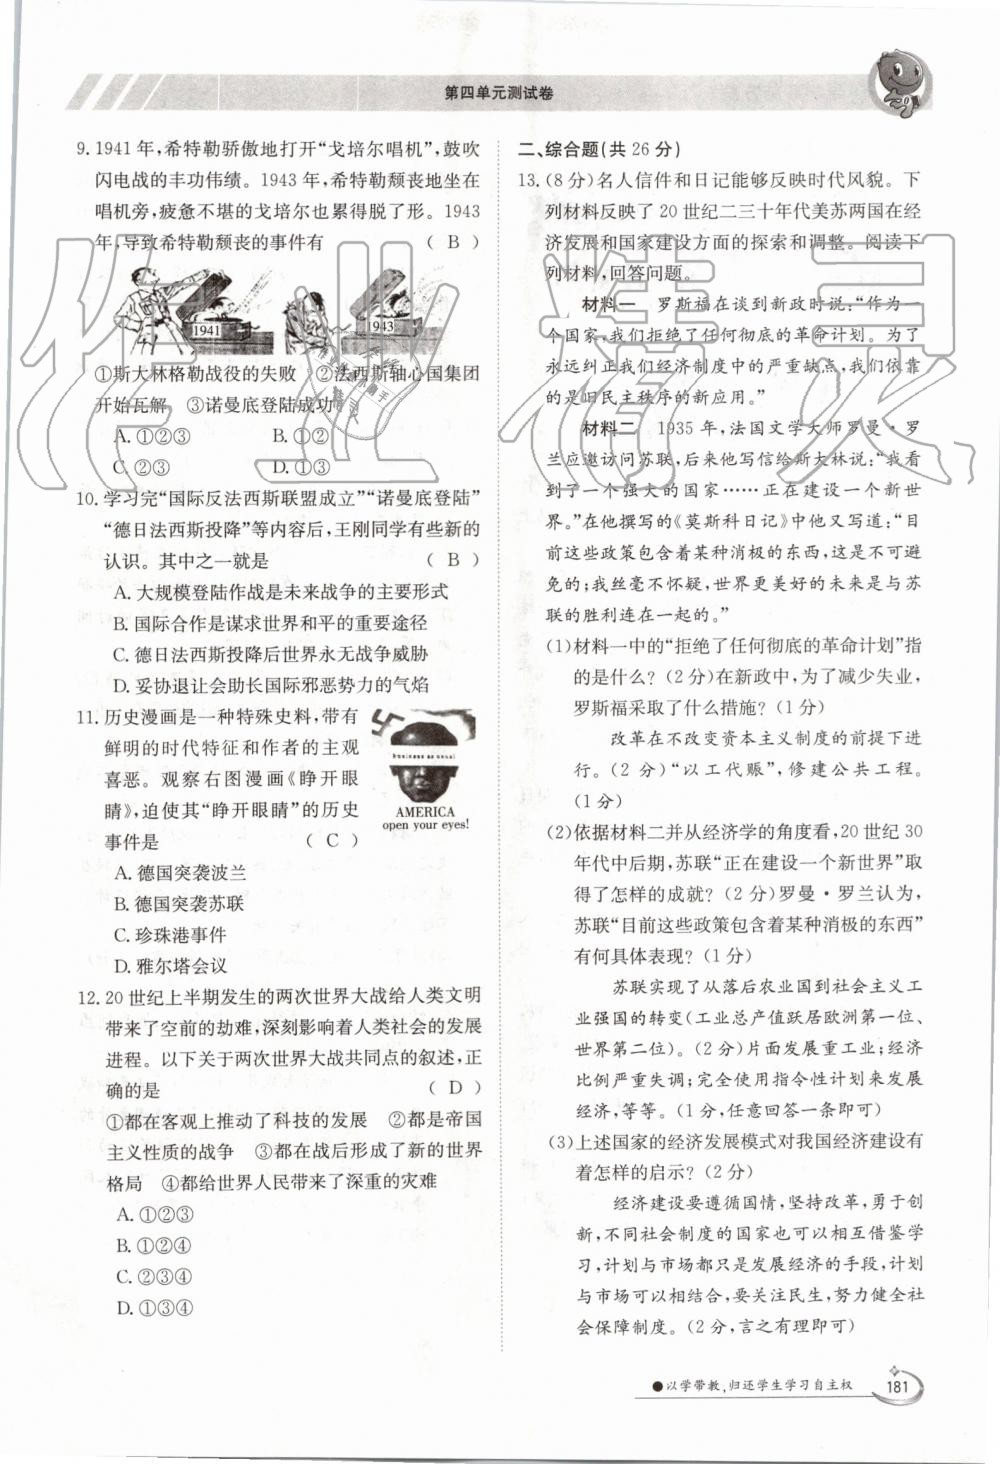 第四单元测试卷
9. 1941 年，希特勒骄傲地打开“戈培尔唱机”，鼓吹
闪电战的丰功伟绩。1943 年，希特勒颓丧地坐在
唱机旁，疲惫不堪的戈培尔也累得脱了形。1943
年，导致希特勒颓丧的事件有 （ B ）
1941
1943
①斯大林格勒战役的失败 ②法西斯轴心国集团
开始瓦解 ③诺曼底登陆成功
A. ①②③ B. ①②
C. ②③ D. ①③
10. 学习完“国际反法西斯联盟成立”“诺曼底登陆”
“德日法西斯投降”等内容后，王刚同学有些新的
认识。其中之一就是 （ B ）
A. 大规模登陆作战是未来战争的主要形式
B. 国际合作是谋求世界和平的重要途径
C. 德日法西斯投降后世界永无战争威胁
D. 妥协退让会助长国际邪恶势力的气焰
11. 历史漫画是一种特殊史料，带有
鲜明的时代特征和作者的主观
喜恶。观察右图漫画《睁开眼
睛》，迫使其“睁开眼睛”的历史
事件是 （ C ）
business as usual
AMERICA
open your eyes!
A. 德国突袭波兰
B. 德国突袭苏联
C. 珍珠港事件
D. 雅尔塔会议
12. 20 世纪上半期发生的两次世界大战给人类文明
带来了空前的劫难，深刻影响着人类社会的发展
进程。以下关于两次世界大战共同点的叙述，正
确的是 （ D ）
①都在客观上推动了科技的发展 ②都是帝国
主义性质的战争 ③都在战后形成了新的世界
格局 ④都给世界人民带来了深重的灾难
A. ①②③
B. ①②④
C. ②③④
D. ①③④
二、综合题（共 26 分）
13. （8 分）名人信件和日记能够反映时代风貌。下
列材料反映了 20 世纪二三十年代美苏两国在经
济发展和国家建设方面的探索和调整。阅读下
列材料，回答问题。
材料一 罗斯福在谈到新政时说：“作为一
个国家，我们拒绝了任何彻底的革命计划。为了
永远纠正我们经济制度中的严重缺点，我们依靠
的是旧民主秩序的新应用。”
材料二 1935 年，法国文学大师罗曼·罗
兰应邀访问苏联，后来他写信给斯大林说：“我看
到了一个强大的国家……正在建设一个新世
界。”在他撰写的《莫斯科日记》中他又写道：“目
前这些政策包含着某种消极的东西，这是不可避
免的；我丝毫不怀疑，世界更美好的未来是与苏
联的胜利连在一起的。”
（1）材料一中的“拒绝了任何彻底的革命计划”指
的是什么？（2 分）在新政中，为了减少失业，
罗斯福采取了什么措施？（1 分）
改革在不改变资本主义制度的前提下进
行。（2 分）“以工代赈”，修建公共工程。
（1 分）
（2）依据材料二并从经济学的角度看，20 世纪 30
年代中后期，苏联“正在建设一个新世界”取
得了怎样的成就？（2 分）罗曼·罗兰认为，
苏联“目前这些政策包含着某种消极的东西”
有何具体表现？（1 分）
苏联实现了从落后农业国到社会主义工
业强国的转变（工业总产值跃居欧洲第一位、
世界第二位）。（2 分）片面发展重工业；经济
比例严重失调；完全使用指令性计划来发展
经济，等等。（1 分，任意回答一条即可）
（3）上述国家的经济发展模式对我国经济建设有
着怎样的启示？（2 分）
经济建设要遵循国情，坚持改革，勇于创
新，不同社会制度的国家也可以相互借鉴学
习，计划与市场都只是发展经济的手段，计划
与市场可以相结合，要关注民生，努力健全社
会保障制度。（2 分，言之有理即可）
●以学带教，归还学生学习自主权
181
作业精灵